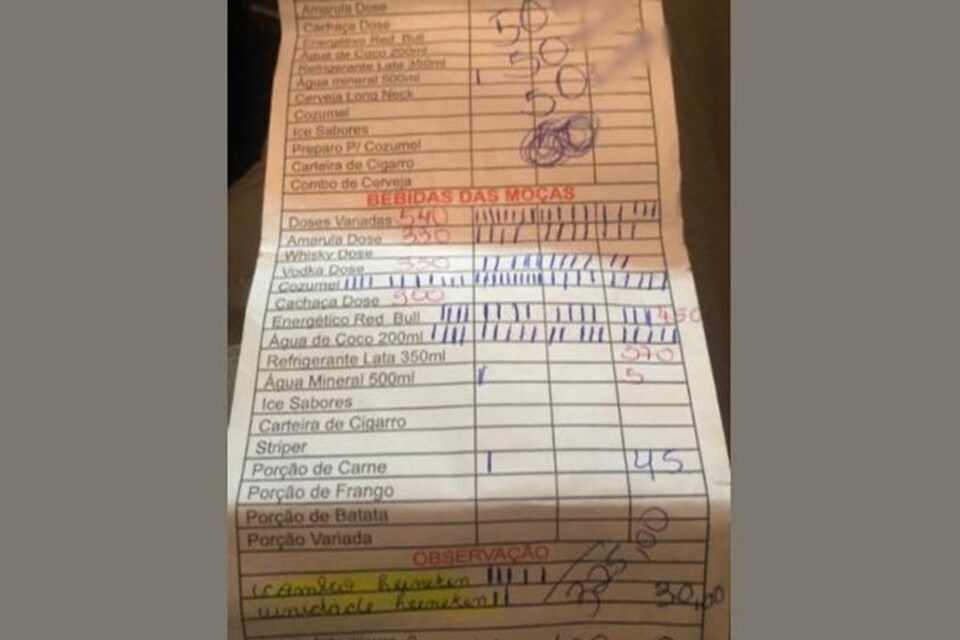 Amarula Dose
Cachaça Dose 50
Energético Red Bull
Água de Coco 200ml 50
Refrigerante Lata 350ml
Água mineral 500ml 50
Cerveja Long Neck
Cozumel 50
Ice Sabores
Preparo P/ Cozumel
Carteira de Cigarro
Combo de Cerveja
BEBIDAS DAS MOÇAS
Doses Variadas 540
Amarula Dose 330
Whisky Dose
Vodka Dose 350
Cozumel
Cachaça Dose 900
Energético Red Bull 450
Água de Coco 200ml
Refrigerante Lata 350ml 570
Água Mineral 500ml 5
Ice Sabores
Carteira de Cigarro
Striper
Porção de Carne 45
Porção de Frango
Porção de Batata
Porção Variada
OBSERVAÇÃO
325,00
unidade 30,00